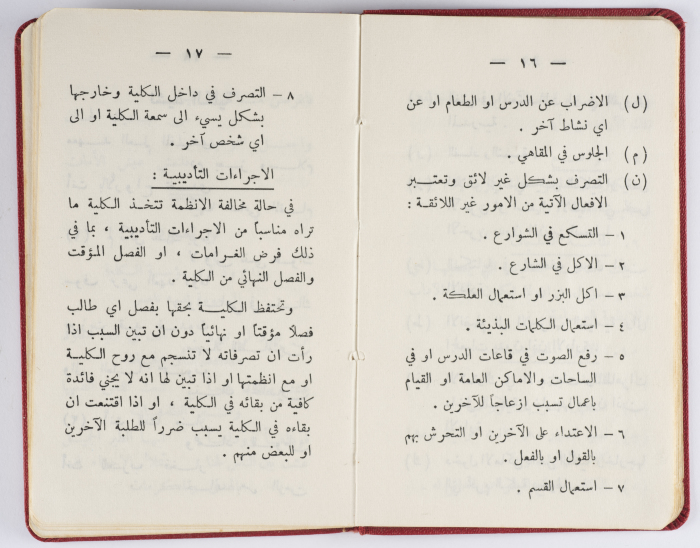 — ١٦ —
(ل) الاضراب عن الدرس او الطعام او عن
اي نشاط آخر .
(م) الجلوس في المقاهي .
(ن) التصرف بشكل غير لائق وتعتبر
الافعال الآتية من الامور غير اللائقة :
١ – التسكع في الشوارع .
٢ – الاكل في الشارع .
٣ – اكل البزر او استعمال العلكة .
٤ – استعمال الكلمات البذيئة .
٥ – رفع الصوت في قاعات الدرس او في
الساحات والاماكن العامة او القيام
باعمال تسبب ازعاجاً للآخرين .
٦ – الاعتداء على الآخرين او التحرش بهم
بالقول او بالفعل .
٧ – استعمال القسم .
— ١٧ —
٨ – التصرف في داخل الكلية وخارجها
بشكل يسيء الى سمعة الكلية او الى
اي شخص آخر .
الاجراءات التأديبية :
في حالة مخالفة الانظمة تتخذ الكلية ما
تراه مناسباً من الاجراءات التأديبية ، بما في
ذلك فرض الغرامات ، او الفصل المؤقت
والفصل النهائي من الكلية .
وتحتفظ الكلية بحقها بفصل اي طالب
فصلا مؤقتاً او نهائياً دون ان تبين السبب اذا
رأت ان تصرفاته لا تنسجم مع روح الكلية
او مع انظمتها او اذا تبين لها انه لا يجني فائدة
كافية من بقائه في الكلية ، او اذا اقتنعت ان
بقاءه في الكلية يسبب ضرراً للطلبة الآخرين
او للبعض منهم .